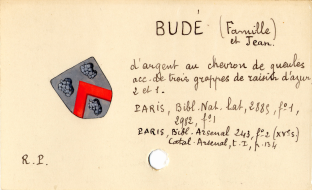 BUDÉ (Famille)
et Jean.
d'argent au chevron de gueules
acc. de trois grappes de raisin d'azur
2 et 1.
PARIS, Bibl. Nat. lat, 2889, f°1,
2982, f°1
PARIS, Bibl. Arsenal 243, f°2 (XVe s)
Catal. Arsenal, t. I, p. 134
R. P.